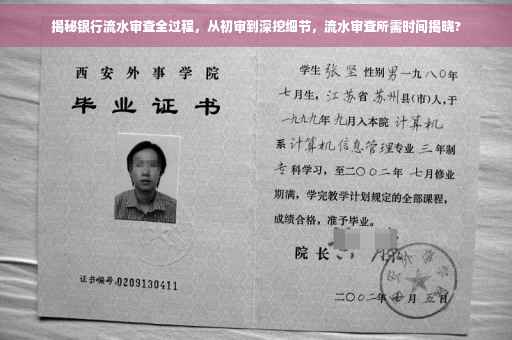 揭秘银行流水审查全过程，从初审到深挖细节，流水审查所需时间揭晓?
西安外事学院
毕业证书
证书编号:0209130411
学生 张坚 性别 男 一九八〇年
七月生，江苏省 苏州 县(市)人，于
一九九九年 九月入本院 计算机
系 计算机信息管理 专业 三 年制
专科学习，至二〇〇二年 七月修业
期满，学完教学计划规定的全部课程，
成绩合格，准予毕业。
院长
二〇〇二年 七 月 五 日